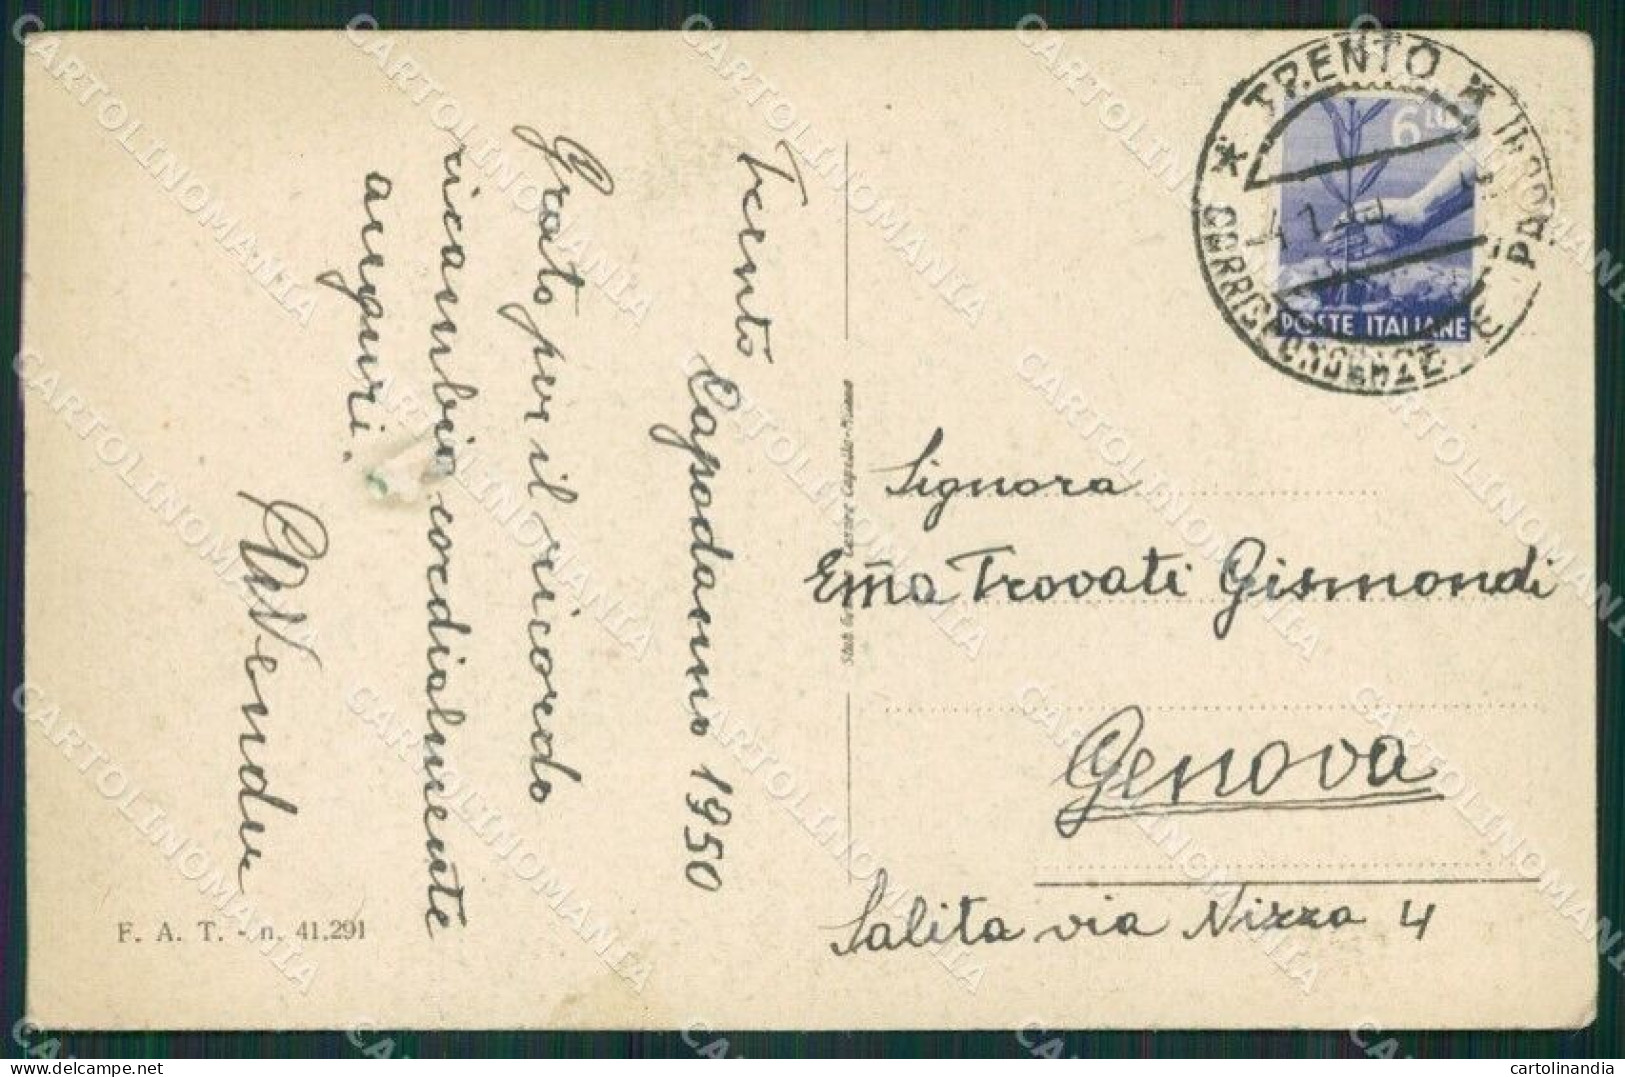 Trento Capodanno 1950
Grato per il ricordo
ricambio cordialmente
auguri.
F. A. T. - n. 41.291
TRENTO
CORRISPONDENZE
PA
4 1
6
POSTE ITALIANE
Signora
Emma Trovati Gismondi
Genova
Salita via Nizza 4
CARTOLINOMANIA
cartolinandia